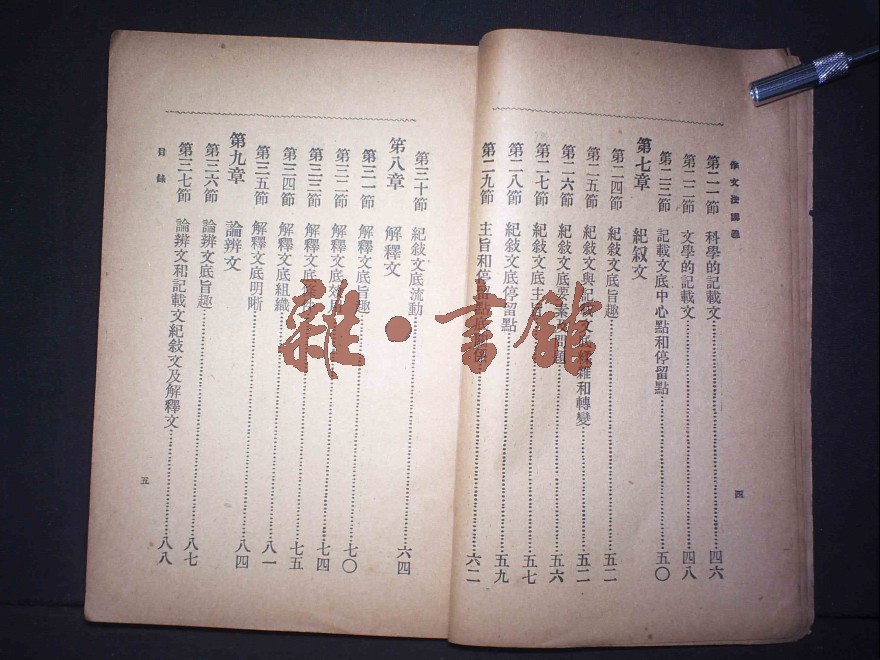 作文法講義
第二一節 科學的記載文 四六
第二二節 文學的記載文 四八
第二三節 記載文底中心點和停留點 五〇
第七章 紀叙文
第二四節 紀敍文底旨趣 五二
第二五節 紀敍文與記載文底 雜和轉變 五二
第二六節 紀敍文底要素 問題 五六
第二七節 紀敍文底主 五七
第二八節 紀敍文底停留點 五九
第二九節 主旨和停留點底 六二
四
第三十節 紀敍文底流動 六四
第八章 解釋文
第三一節 解釋文底旨趣
第三二節 解釋文底效用 七〇
第三三節 解釋文底 七四
第三四節 解釋文底組織 七五
第三五節 解釋文底明晰 八一
第九章 論辨文 八四
第三六節 論辨文底旨趣 八七
第三七節 論辨文和記載文紀敍文及解釋文 八八
目錄
五
雜·書館